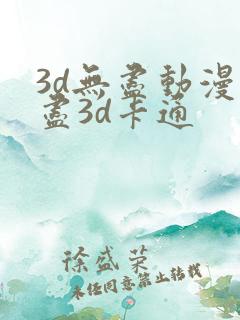 3d無盡動漫
盡3d卡通
徐盛荣
未经同意禁止转载